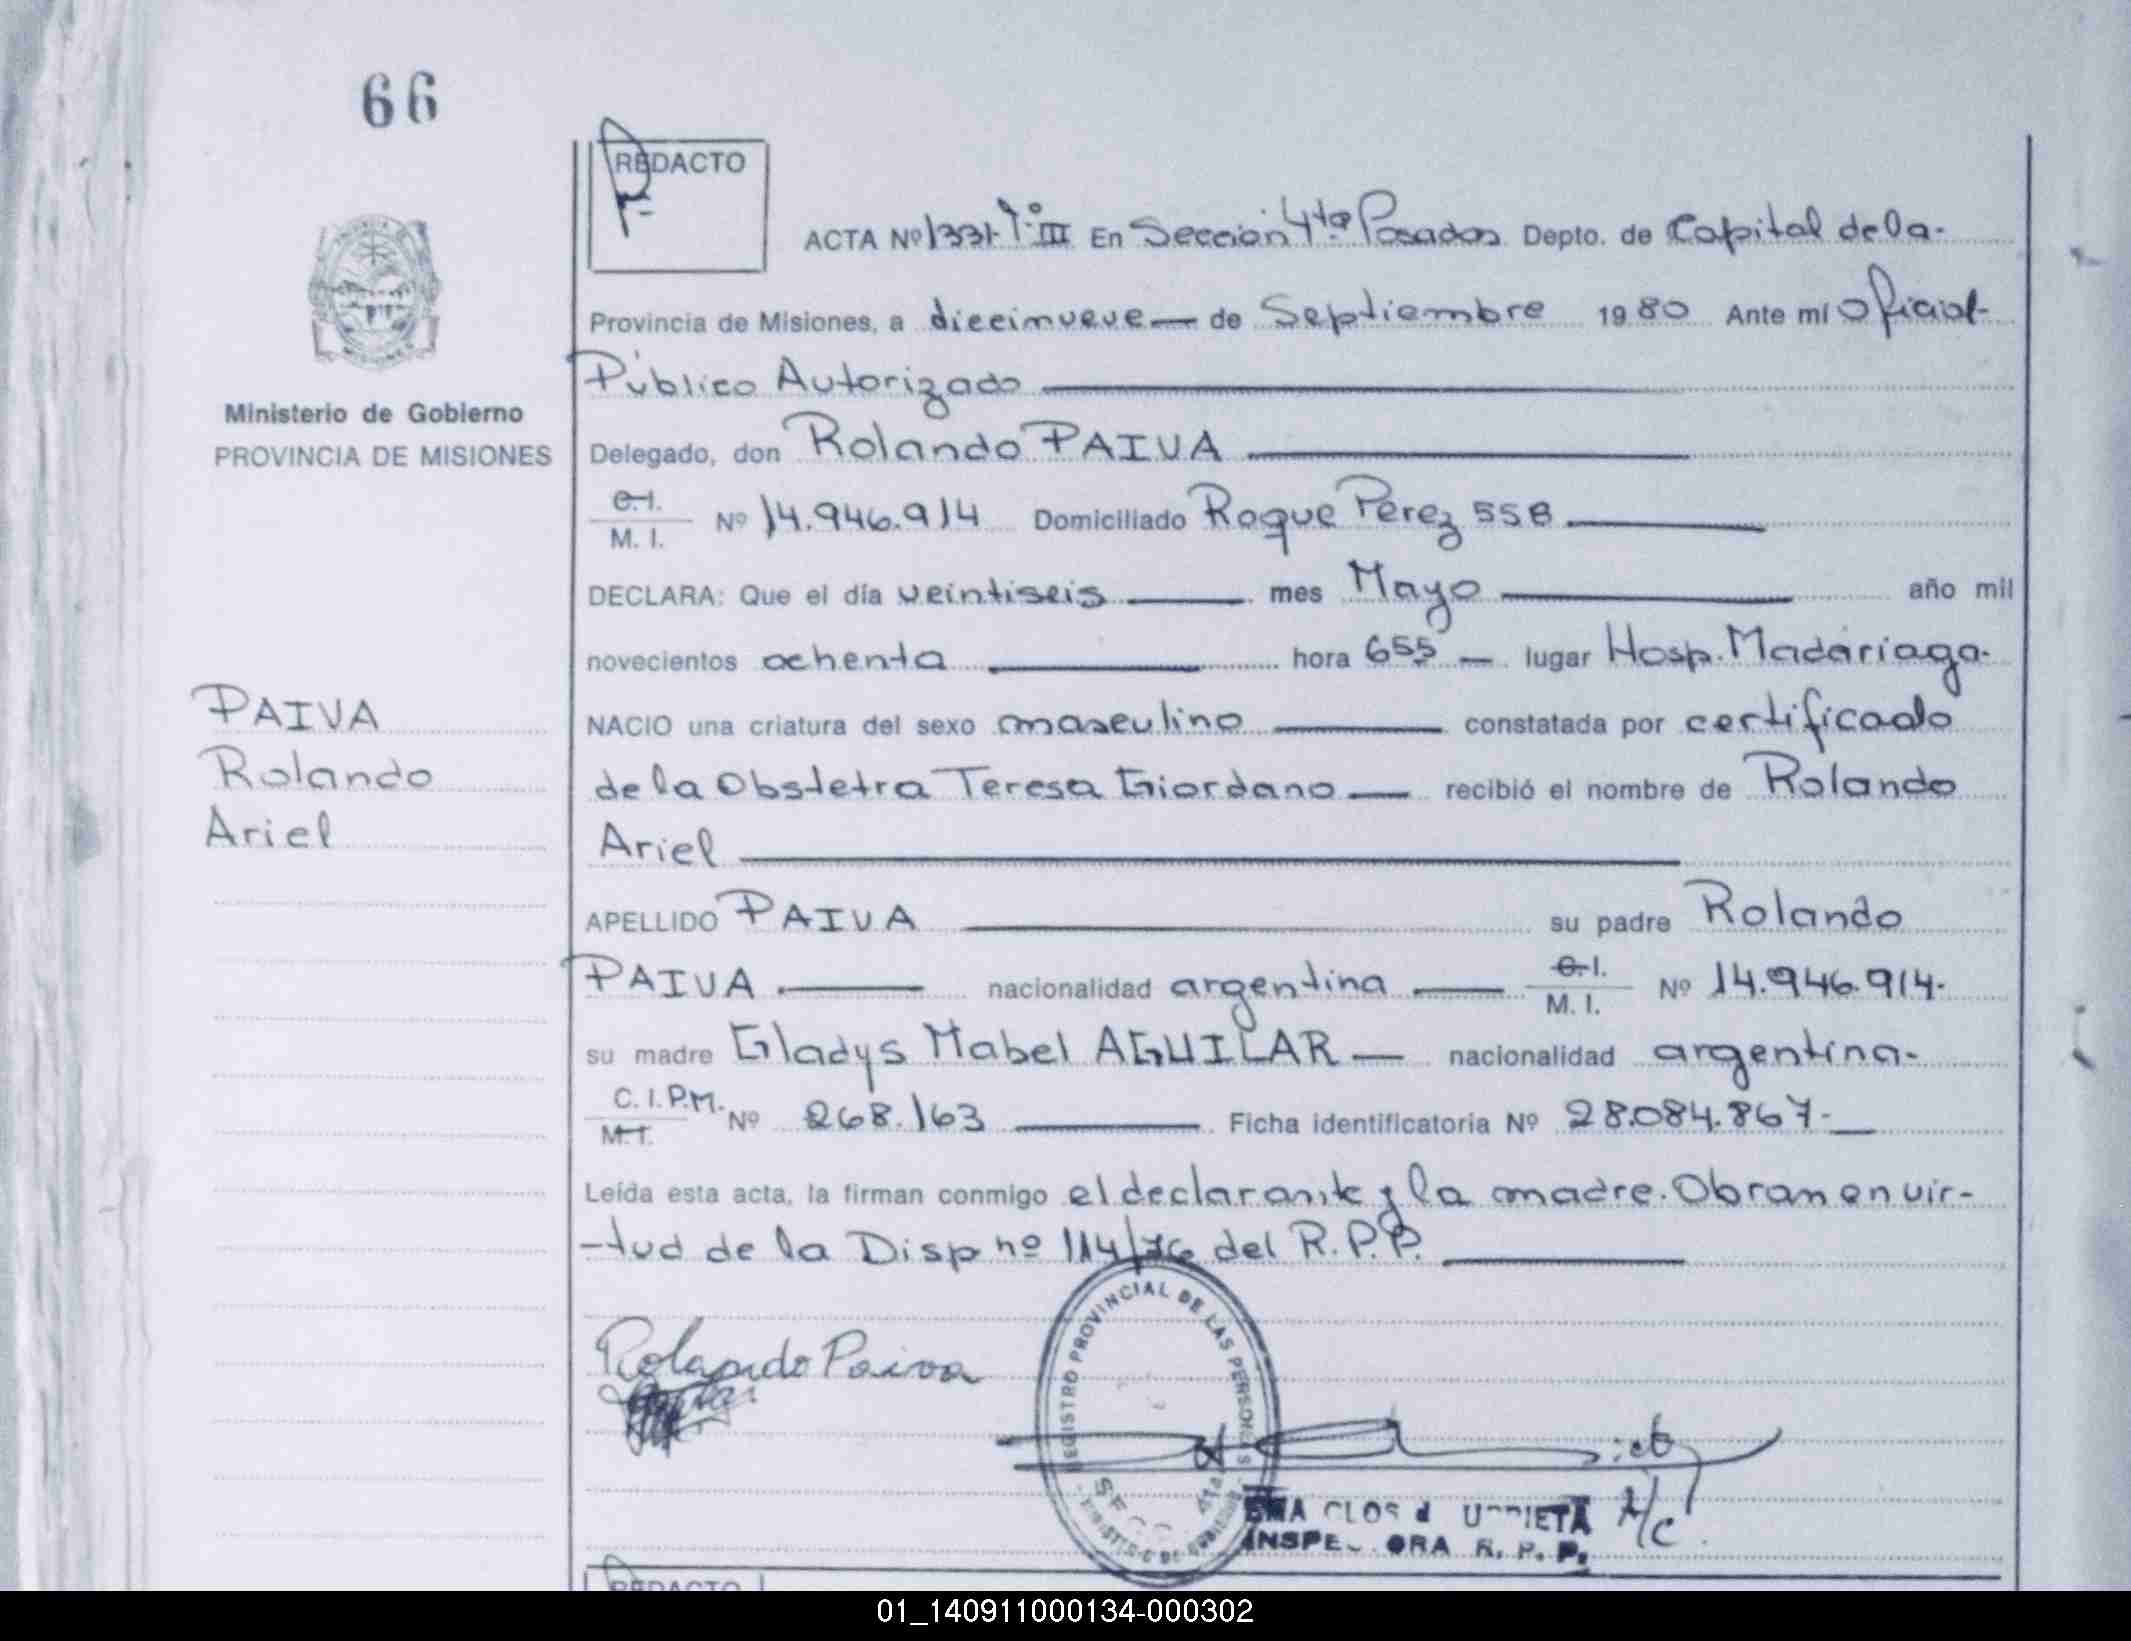 66
REDACTO
ACTA Nº 1331 Tº III En Sección 4ta Posadas Depto. de Capital de la-
Provincia de Misiones, a diecinueve — de Septiembre 1980 Ante mí Oficial-
Público Autorizado
Ministerio de Gobierno
PROVINCIA DE MISIONES
Delegado, don Rolando PAIVA
C.I.
M. I. Nº 14.946.914 Domiciliado Roque Pérez 558
DECLARA: Que el día veintiseis mes Mayo año mil
novecientos ochenta hora 655 — lugar Hosp. Madariaga-
PAIVA
Rolando
Ariel
NACIO una criatura del sexo masculino constatada por certificado
de la Obstetra Teresa Giordano — recibió el nombre de Rolando
Ariel
APELLIDO PAIVA su padre Rolando
PAIVA nacionalidad argentina C.I.
M. I. Nº 14.946.914-
su madre Gladys Mabel AGUILAR — nacionalidad argentina-
C. I. P.M.
M.I. Nº 268.163 Ficha identificatoria Nº 28.084.867-
Leída esta acta, la firman conmigo el declarante y la madre. Obran en vir-
-tud de la Disp nº 114/76 del R.P.P.
Rolando Paiva
REGISTRO PROVINCIAL DE LAS PERSONAS
A/C
R. P. P.
REDACTO
01_140911000134-000302